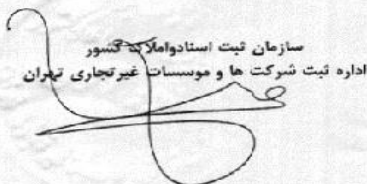 سازمان ثبت اسنادواملاک کشور
اداره ثبت شرکت ها و موسسات غیرتجاری تهران